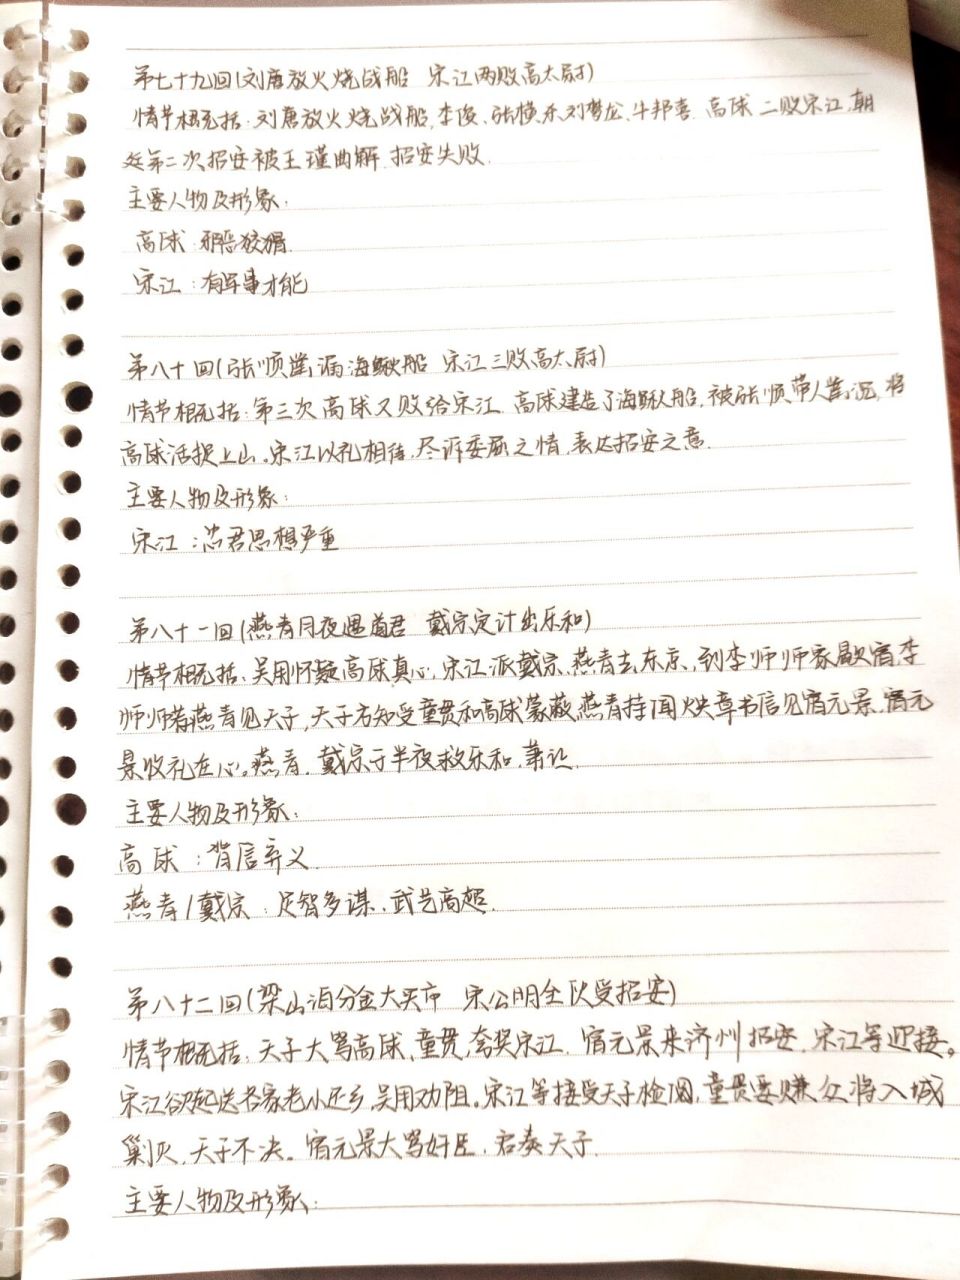 第七十九回(刘唐放火烧战船 宋江两败高太尉)
情节概括:刘唐放火烧战船,李俊、张横杀刘梦龙、牛邦喜.高球二败宋江,朝
廷第二次招安被王瑾曲解.招安失败.
主要人物及形象:
高球:邪恶狡猾.
宋江:有军事才能
第八十回(张顺凿漏海鳅船 宋江三败高太尉)
情节概括:第三次高球又败给宋江.高球建造了海鳅船,被张顺带人凿沉,将
高球活捉上山。宋江以礼相待,尽诉委屈之情,表达招安之意.
主要人物及形象:
宋江:忠君思想严重
第八十一回(燕青月夜遇道君 戴宗定计出乐和)
情节概括:吴用怀疑高球真心,宋江派戴宗、燕青去东京,到李师师家歇宿,李
师师着燕青见天子,天子方知受童贯和高球蒙蔽,燕青持闻焕章书信见宿元景.宿元
景收礼在心。燕青、戴宗于半夜救乐和、萧让.
主要人物及形象:
高球:背信弃义.
燕青/戴宗:足智多谋、武艺高超.
第八十二回(梁山泊分金大买市 宋公明全伙受招安)
情节概括:天子大骂高球、童贯,夸奖宋江.宿元景来济州招安,宋江等迎接。
宋江欲起送各家老小还乡,吴用劝阻。宋江等接受天子检阅,童贯要赚众将入城
剿灭,天子不决。宿元景大骂奸臣,启奏天子.
主要人物及形象: